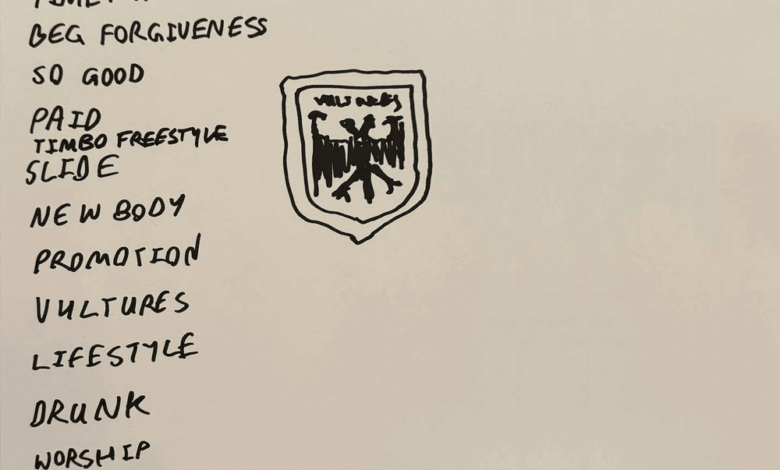 BEG FORGIVENESS
SO GOOD
PAID
TIMBO FREESTYLE
SLIDE
NEW BODY
PROMOTION
VULTURES
LIFESTYLE
DRUNK
WORSHIP
VULTURES